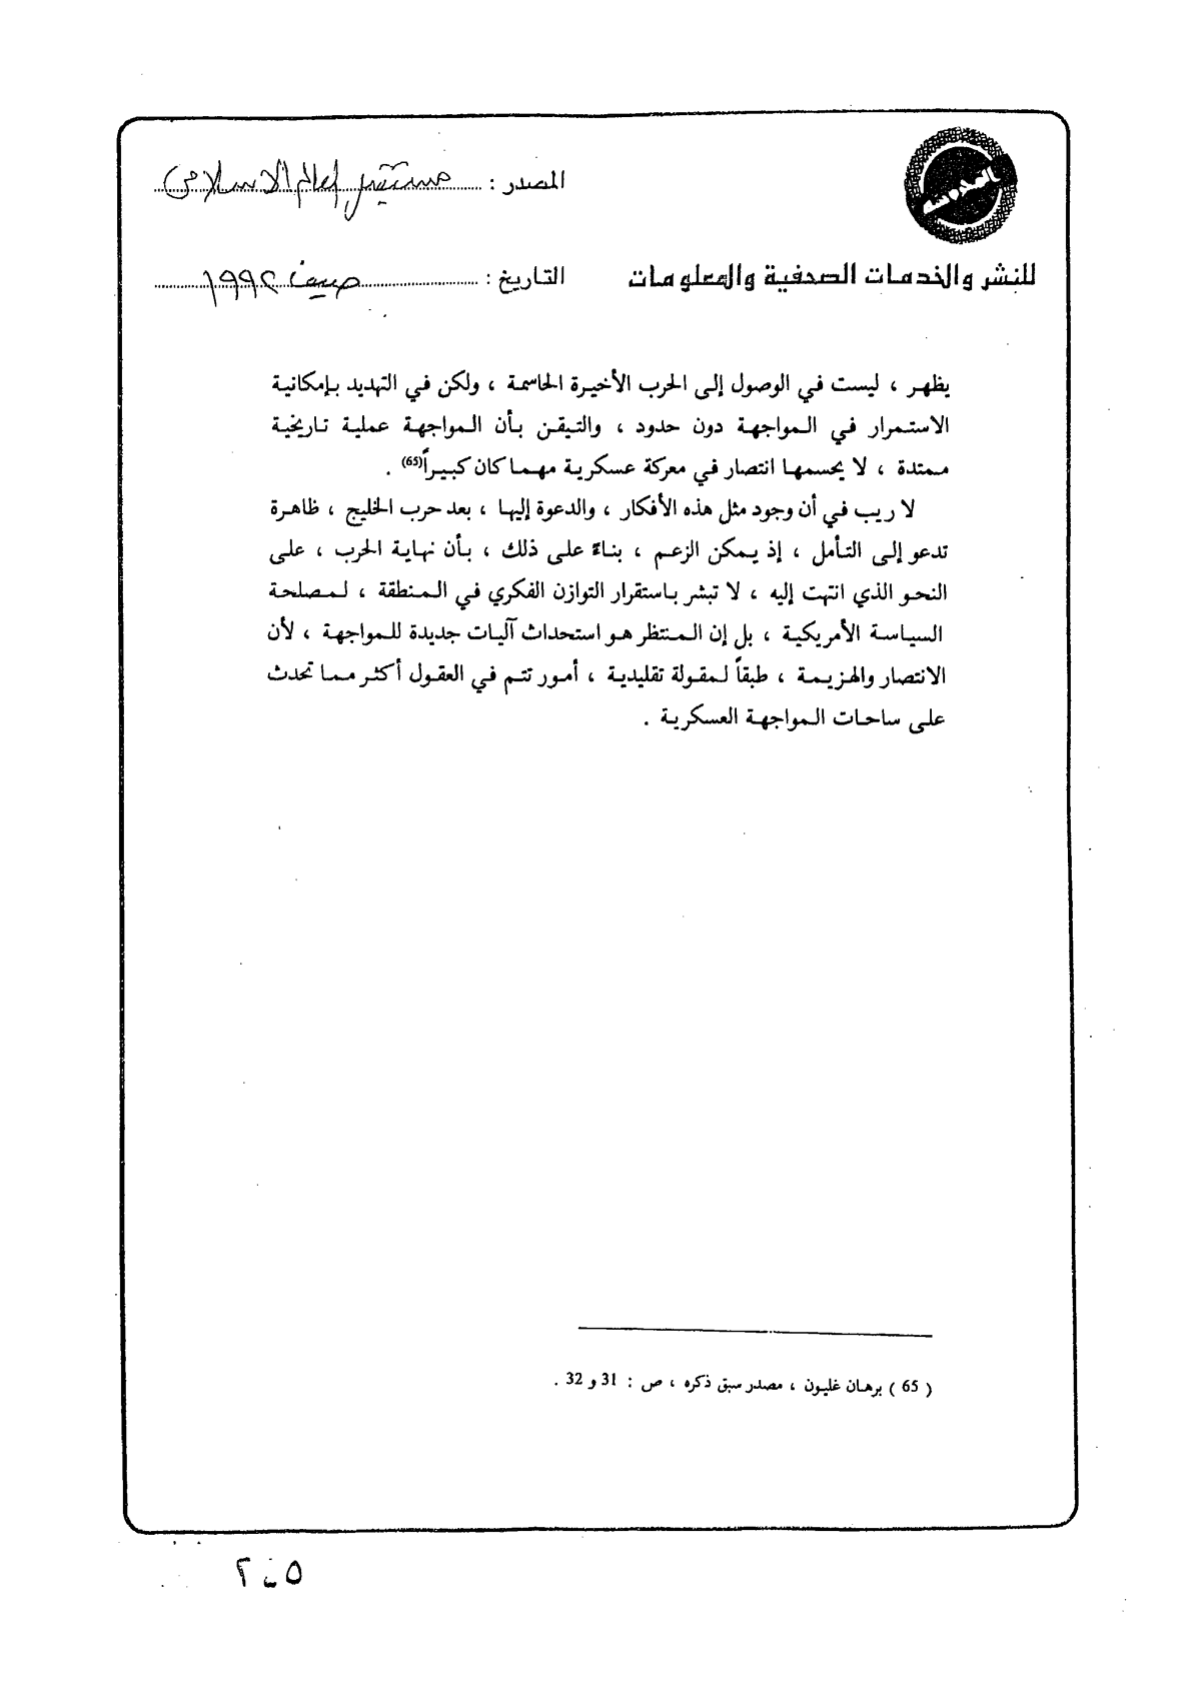 المصدر : مستقبل العالم الاسلامى
للنشر والخدمات الصحفية والمعلومات
التاريخ : صيف ١٩٩٢
يظهر ، ليست في الوصول إلى الحرب الأخيرة الحاسمة ، ولكن في التهديد بإمكانية
الاستمرار في المواجهة دون حدود ، والتيقن بأن المواجهة عملية تاريخية
ممتدة ، لا يحسمها انتصار في معركة عسكرية مهما كان كبيراً(65) .
لا ريب في أن وجود مثل هذه الأفكار ، والدعوة إليها ، بعد حرب الخليج ، ظاهرة
تدعو إلى التأمل ، إذ يمكن الزعم ، بناءً على ذلك ، بأن نهاية الحرب ، على
النحو الذي انتهت إليه ، لا تبشر باستقرار التوازن الفكري في المنطقة ، لمصلحة
السياسة الأمريكية ، بل إن المنتظر هو استحداث آليات جديدة للمواجهة ، لأن
الانتصار والهزيمة ، طبقاً لمقولة تقليدية ، أمور تتم في العقول أكثر مما تحدث
على ساحات المواجهة العسكرية .
( 65 ) برهان غليون ، مصدر سبق ذكره ، ص : 31 و 32 .